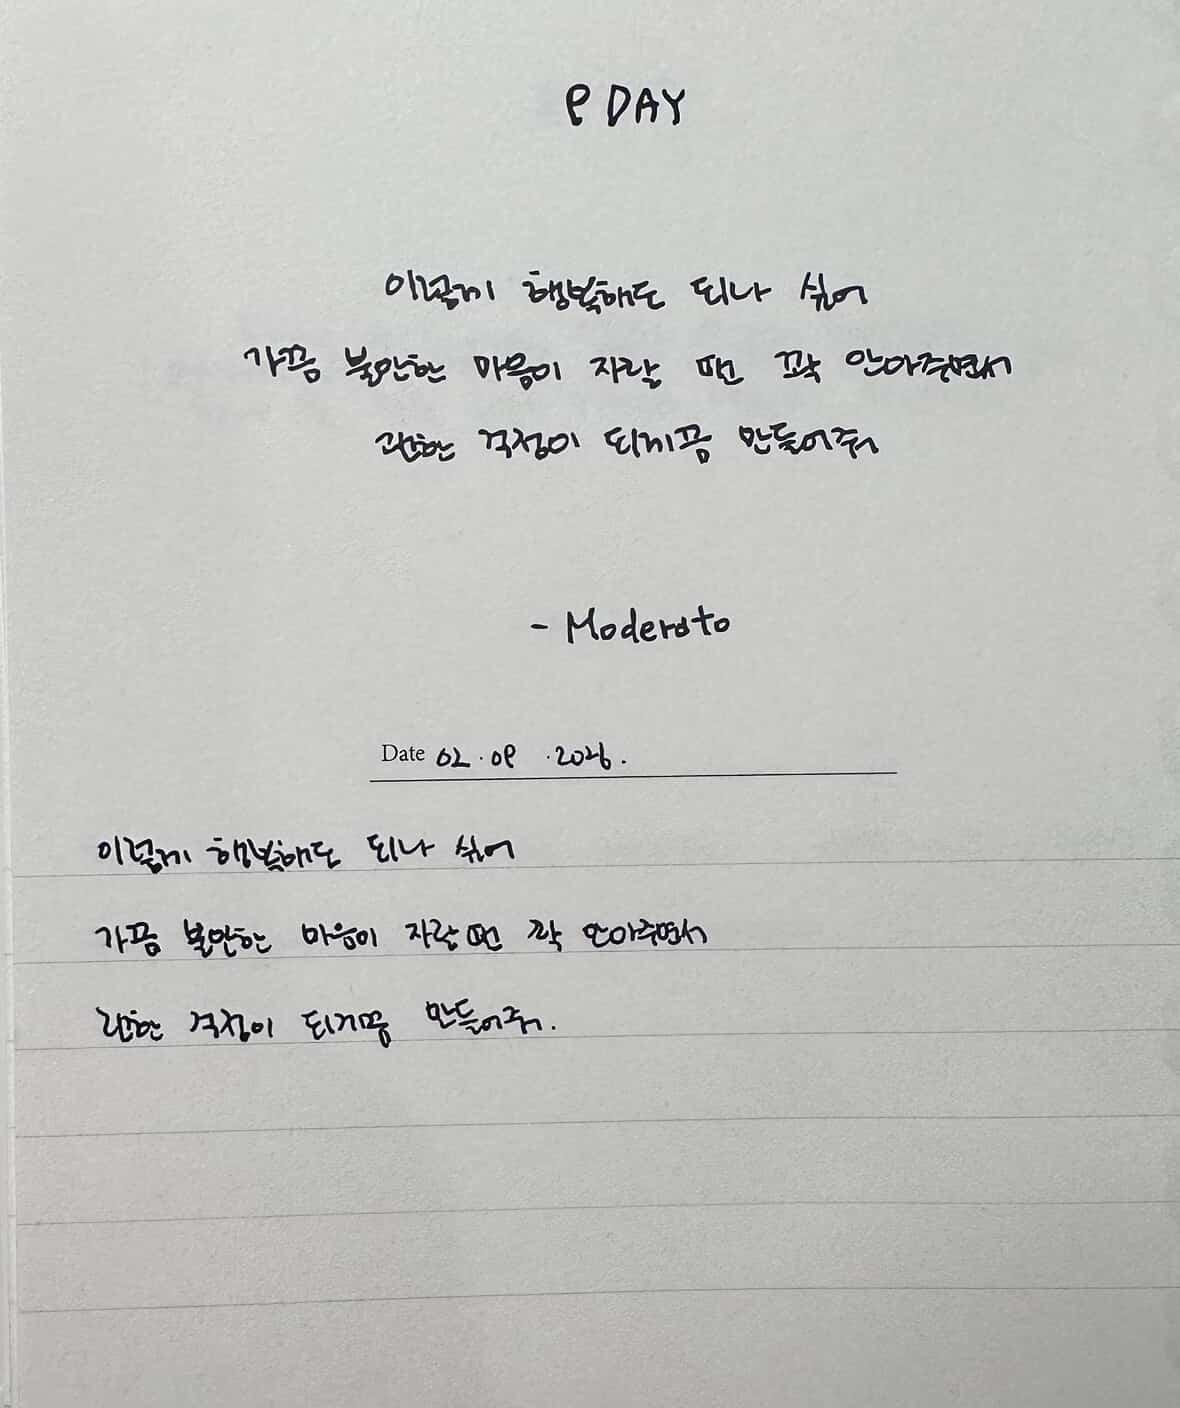 9 DAY
이렇게 행복해도 되나 싶어
가끔 불안한 마음이 자랄 땐 꽉 안아주면서
괜한 걱정이 되게끔 만들어줘
- Moderato
Date 02.09.2026.
이렇게 행복해도 되나 싶어
가끔 불안한 마음이 자랄 땐 꽉 안아주면서
괜한 걱정이 되게끔 만들어줘.